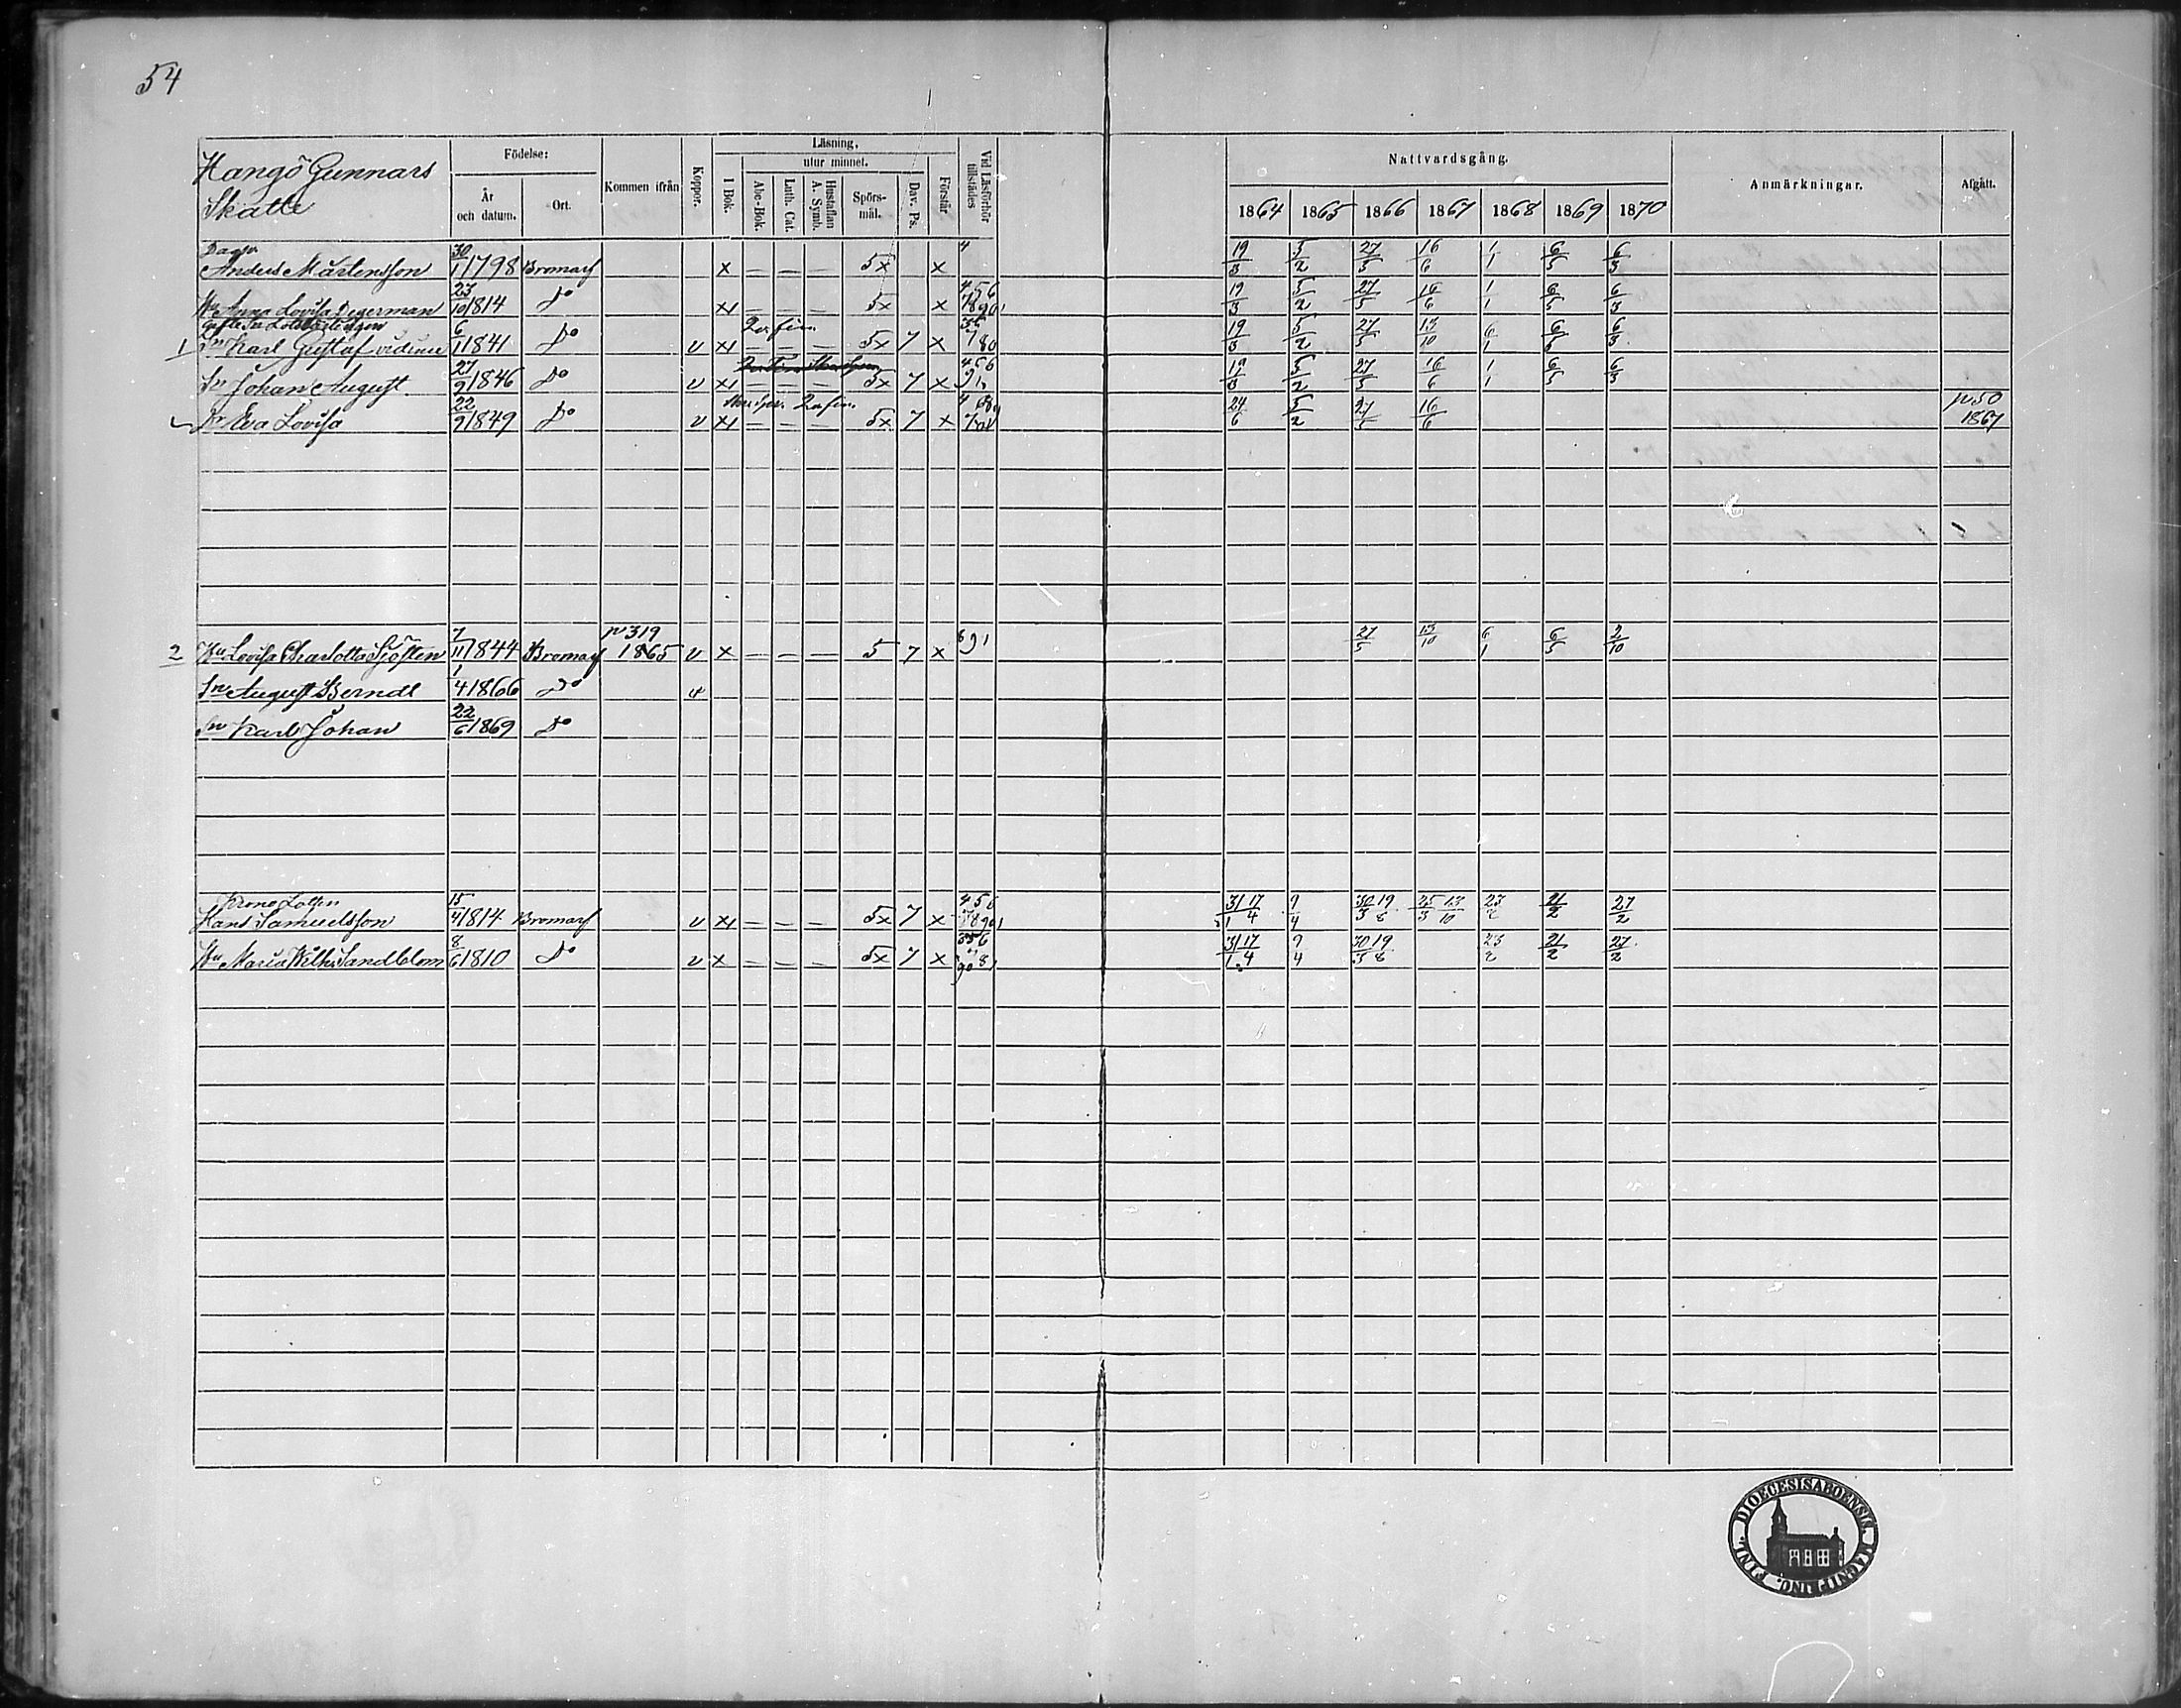 54
Hangö Gunnars
Skatte
Födelse:
År och datum.
Ort.
Kommen ifrån
Koppor.
Läsning,
I Bok.
utur minnet.
Abc-Bok.
Luth. Cat.
Hustaflan A. Symb.
Spörs-mål.
Dav. Ps.
Förstår
Vid Läsförhör tillstädes
Nattvardsgång.
1864 1865 1866 1867 1868 1869 1870
Anmärkningar.
Afgått.
Anders Mårtensson 30/1 1798 Bromarf x — — — 5x x 4 19/3 5/2 27/5 16/6 1/1 6/5 6/3
Hu Anna Lovisa Degerman 23/10 1814 Do x — — — 5x x 19/3 5/2 27/5 16/6 1/1 6/5 6/3
1 Sn Karl Gustaf 6/1 1841 Do v x — — — 5x 7 x 19/3 5/2 27/5 13/10 6/1 6/5 6/3
Sn Johan August 27/9 1846 Do v x — — — 5x 7 x 19/3 5/2 27/5 16/6 1/1 6/5 6/3
Dr Eva Lovisa 22/9 1849 Do v x — — — 5x 7 x 24/6 5/2 27/5 16/6 p 50 1867
2 Hu Lovisa Charlotta Sjösten 7/11 1844 Bromarf p 319 1865 v x — — — 5 7 x 27/5 13/10 6/1 6/5 2/10
Sn August Berndt 1/4 1866 Do v
Sn Karl Johan 22/6 1869 Do
Krono Lotsen
Hans Samuelsson 15/4 1814 Bromarf v x — — — 5x 7 x 31/1 17/4 9/4 30/3 19/8 25/3 13/10 23/2 21/2 27/2
Hu Maria Wilh. Sandblom 8/6 1810 Do v x — — — 5x 7 x 31/1 17/4 9/4 30/3 19/8 23/2 21/2 27/2
DIOECESIS ABOENSIS MAGNI PRINC. FINL.